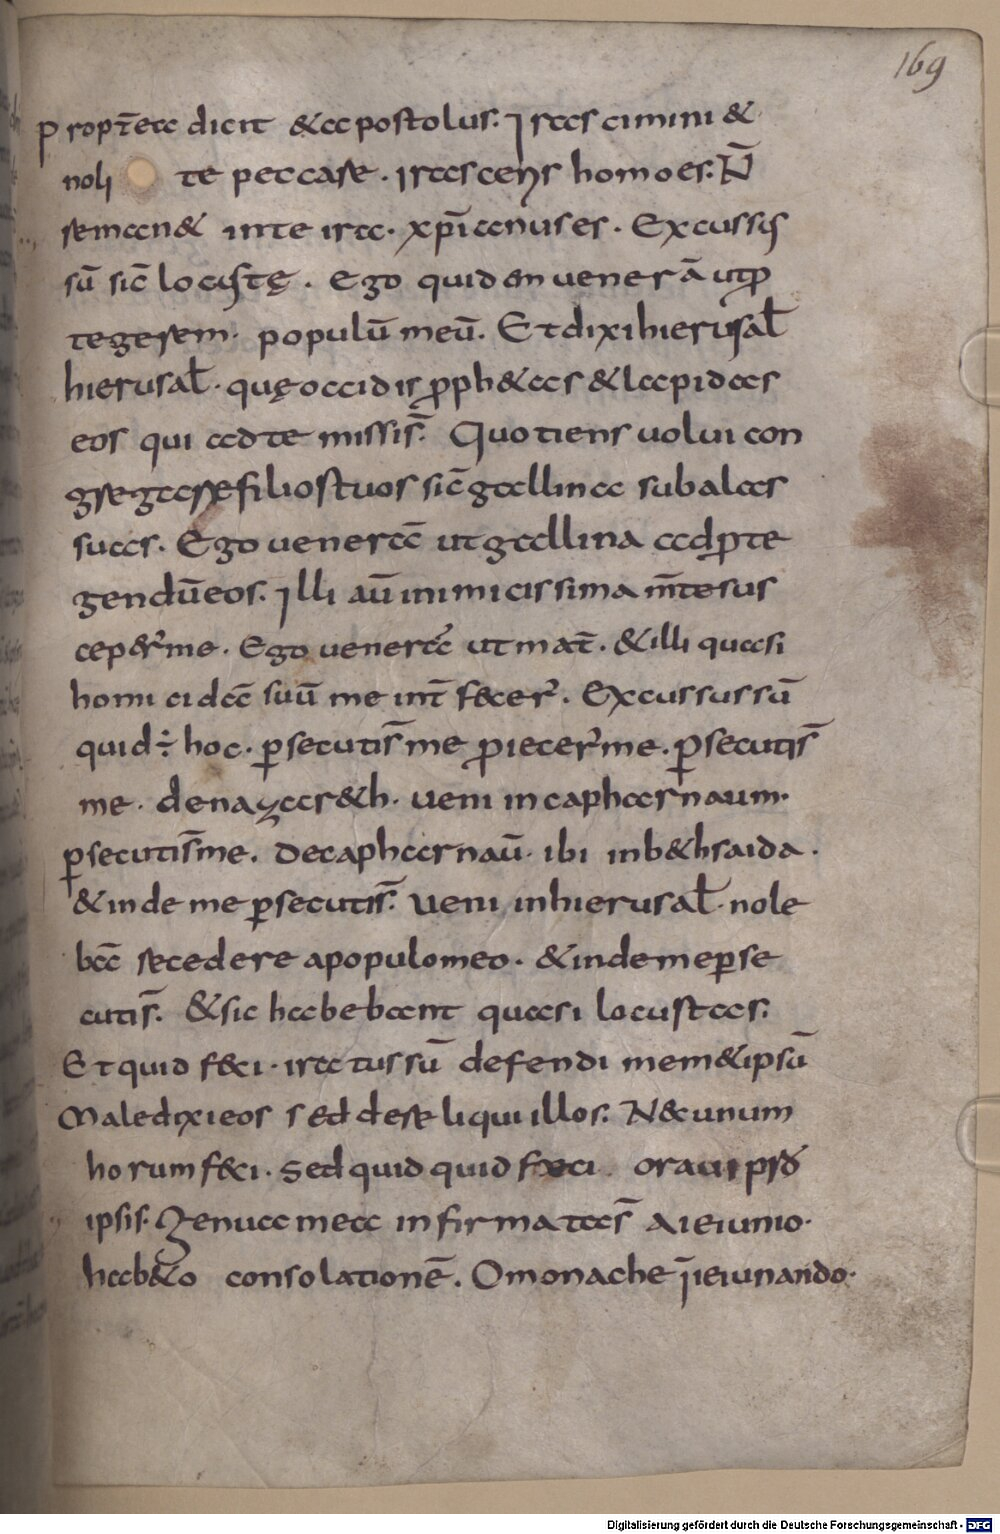 169
propt̄ea dicit & apostolus. Irascimini &
noli te peccare. Irascens homo es. N̄
seman& in te ira. xp̄ianus es. Excussus
sū sic̄ locustę. Ego quidem venerā ut pro
tegerem populū meū. Et dixi hierusal̄
hierusal̄. quę occidis proph&as & lapidas
eos qui ad te missis̄. Quotiens volui con
gregasse filios tuos sic̄ gallina sub alas
suas. Ego venera ut gallina ad prote
gendū eos. Illi aū inimicissima m̄te sus
ceper̄ me. Ego venerā ut mat̄. & illi quasi
homicidā suū me int̄fecer̄. Excussus sū
quid ÷ hoc. persecutis̄ me proiecer̄ me. persecutis̄
me. de nazar&h. veni in capharnaum.
persecutis̄ me. de capharnaū. ibi in b&hsaida.
& inde me persecutis̄. veni in hierusal̄. nole
bā recedere a populo meo. & inde me perse
cutis̄. & sic habebant quasi locustas.
Et quid feci. iratus sū defendi mem&ipsū
Maledixi eos sed dereliqui illos. Nec unum
horum feci. sed quid quid feci oravi pro
ipsis. Genua mea infirmatas̄ a ieiunio.
hab&o consolationē. O monache ieiunando.
Digitalisierung gefördert durch die Deutsche Forschungsgemeinschaft - DFG